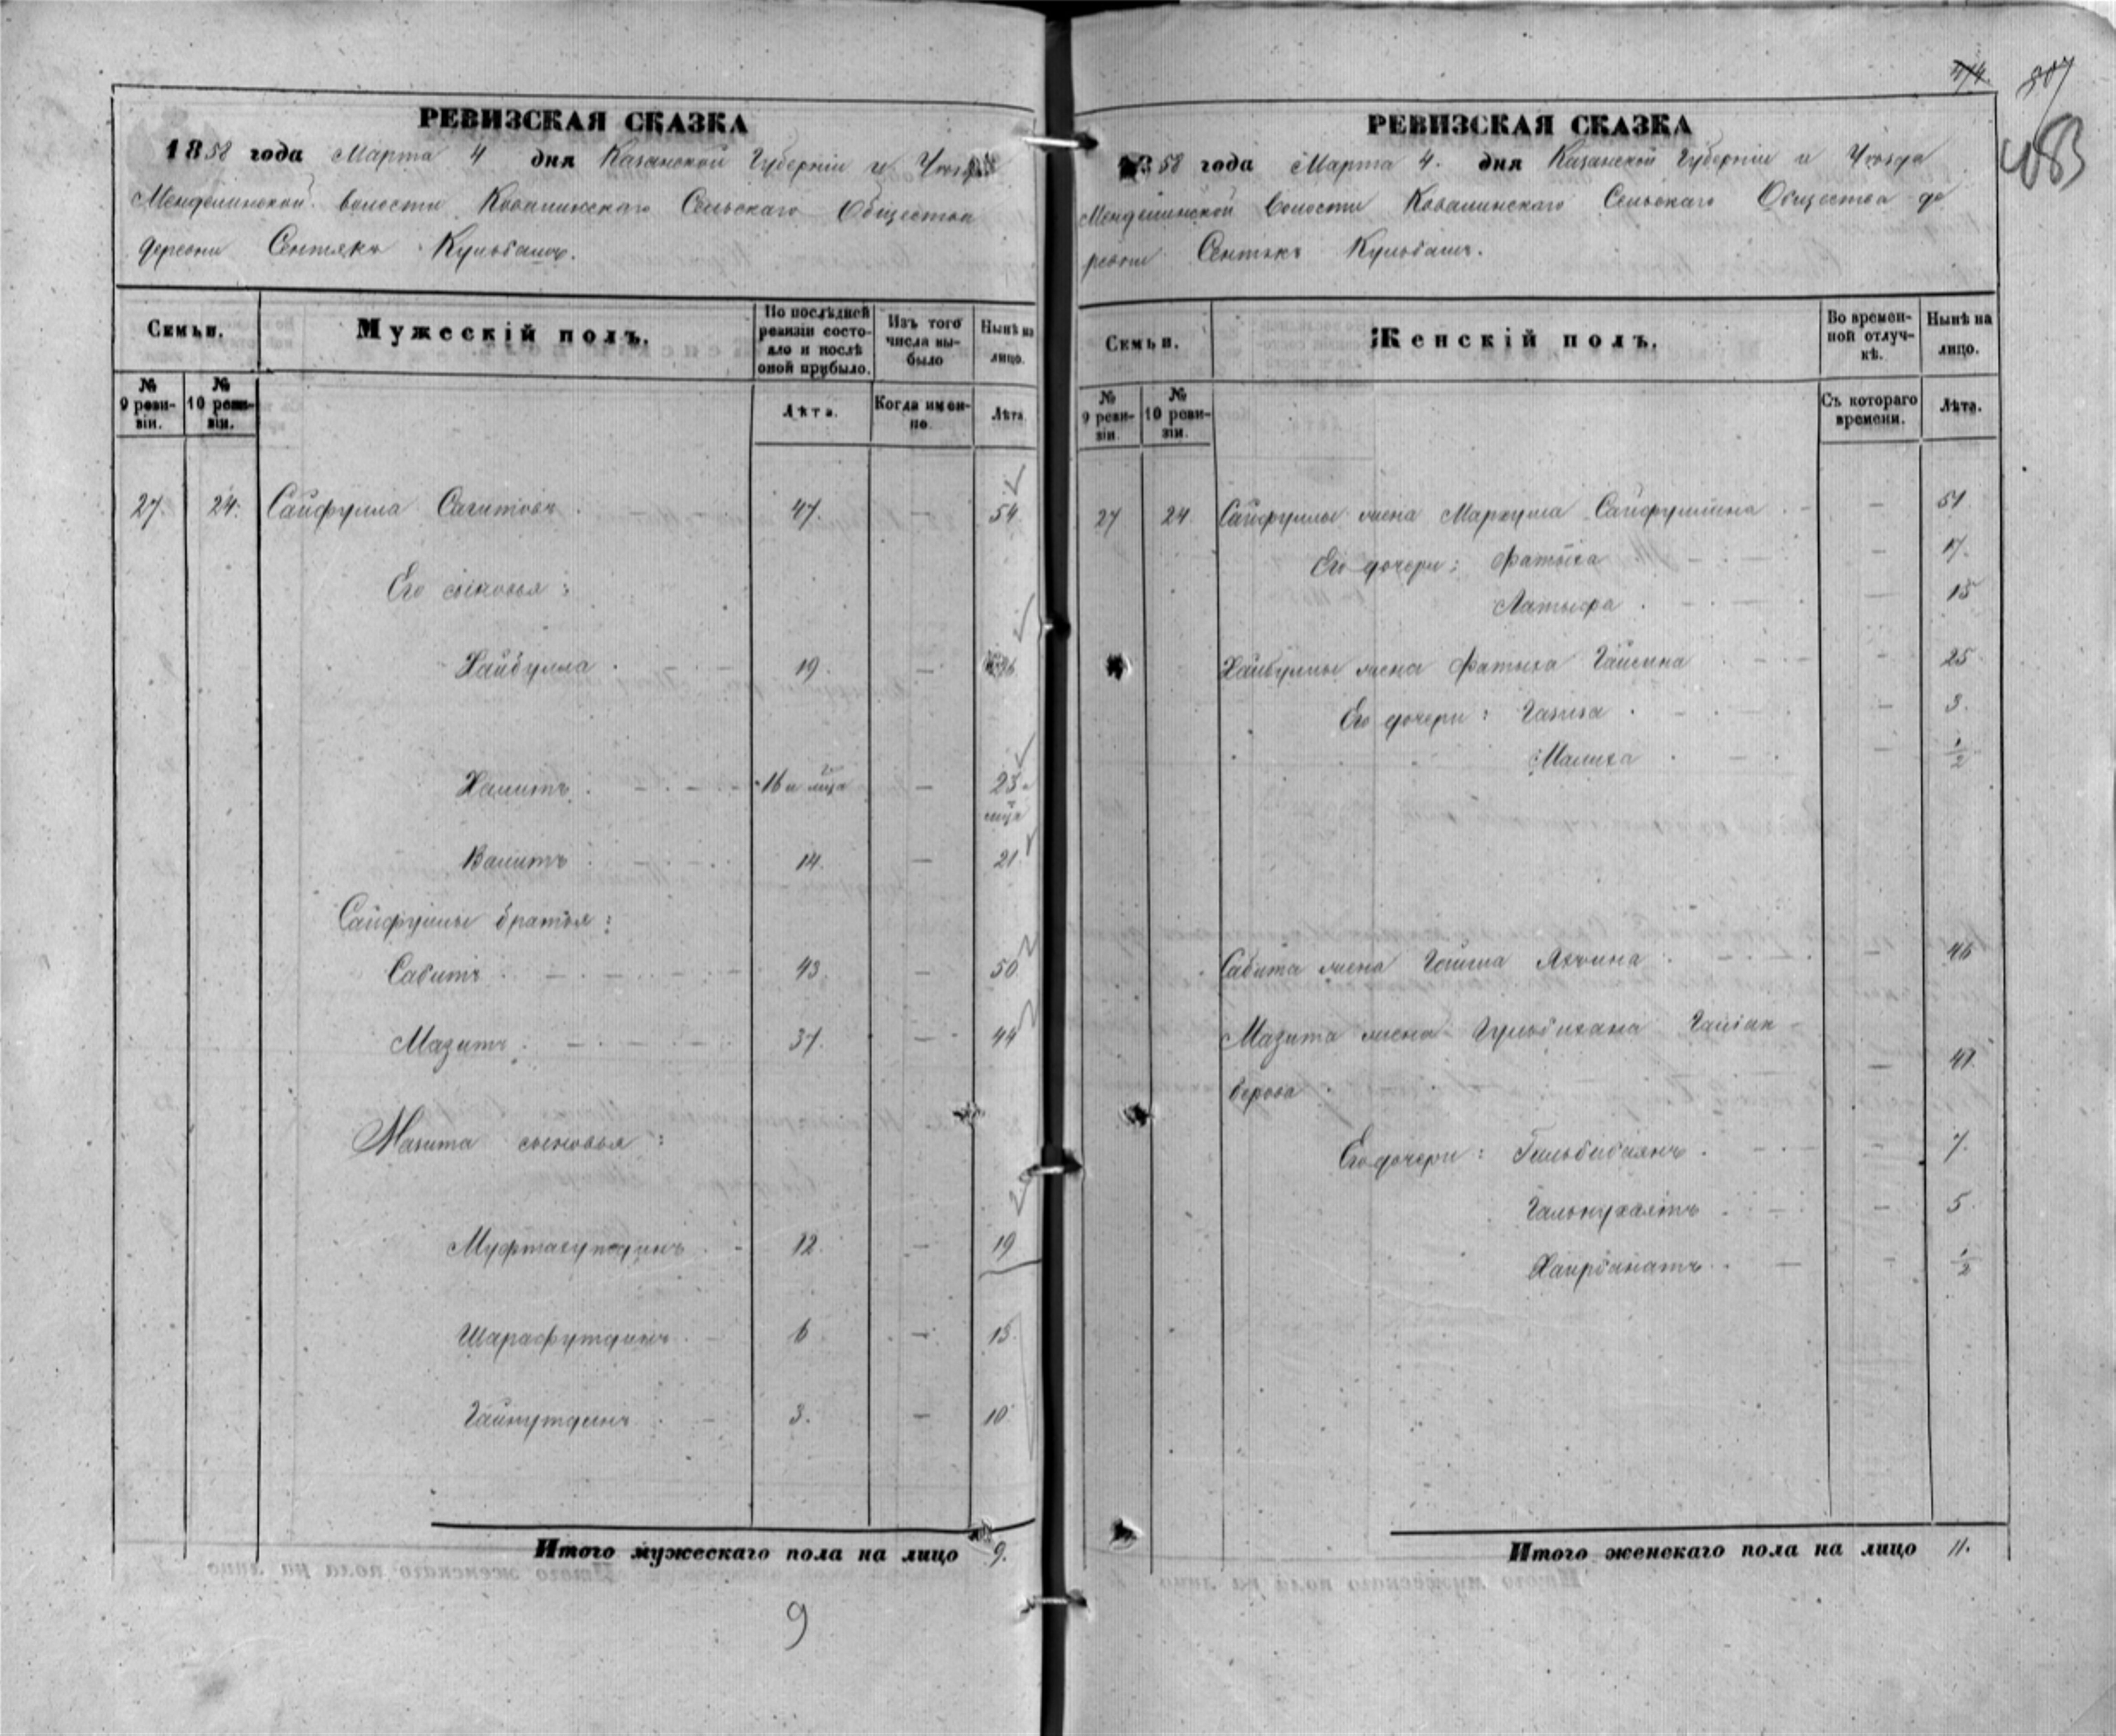 РЕВИЗСКАЯ СКАЗКА
1858 года Марта 4 дня Казанской Губерніи и Уезда
Менделинской волости Ковалинскаго Сельскаго Общества
деревни Сентякъ Кульбашъ.
Семьи.
Мужескій полъ.
По послѣдней ревизіи состояло и послѣ оной прибыло.
Изъ того числа выбыло
Нынѣ на лицо.
№ 9 ревизіи.
№ 10 ревизіи.
Лѣта.
Когда именно
Лѣта
27. 24. Сайфулла Сагитовъ 47. — 54.
Его сыновья:
Хайбулла 19. — 26
Хамитъ 16 и мца — 23 и мца
Валитъ 14. — 21.
Сайфуллы братья:
Сабитъ 43. — 50
Мазитъ 37. — 44
Мазита сыновья:
Муфтахутдинъ 12. — 19
Шарафутдинъ 6 — 13.
Гайнутдинъ 3. — 10.
Итого мужескаго пола на лицо 9.
9
474.
807
483
РЕВИЗСКАЯ СКАЗКА
1858 года Марта 4. дня Казанской Губерніи и Уезда
Менделинской волости Ковалинскаго Сельскаго Общества де
ревни Сентякъ Кульбашъ.
Семьи.
Женскій полъ.
Во временной отлучкѣ.
Нынѣ на лицо.
№ 9 ревизіи.
№ 10 ревизіи.
Съ котораго времени.
Лѣта.
27 24 Сайфуллы жена Маркума Сайфуллина — 51
Его дочери: Фатыха — 17.
Латыфа — 15
Хайбуллы жена Фатыха Гайсина — 25
Его дочери: Газиза — 3.
Малика — 1/2
Сабита жена Гайша — 46
Мазита жена Гульбихана
верова — 41
Его дочери: Гильбибиянъ — 7.
— 5.
Хайрбинатъ — 1/2
Итого женскаго пола на лицо 11.